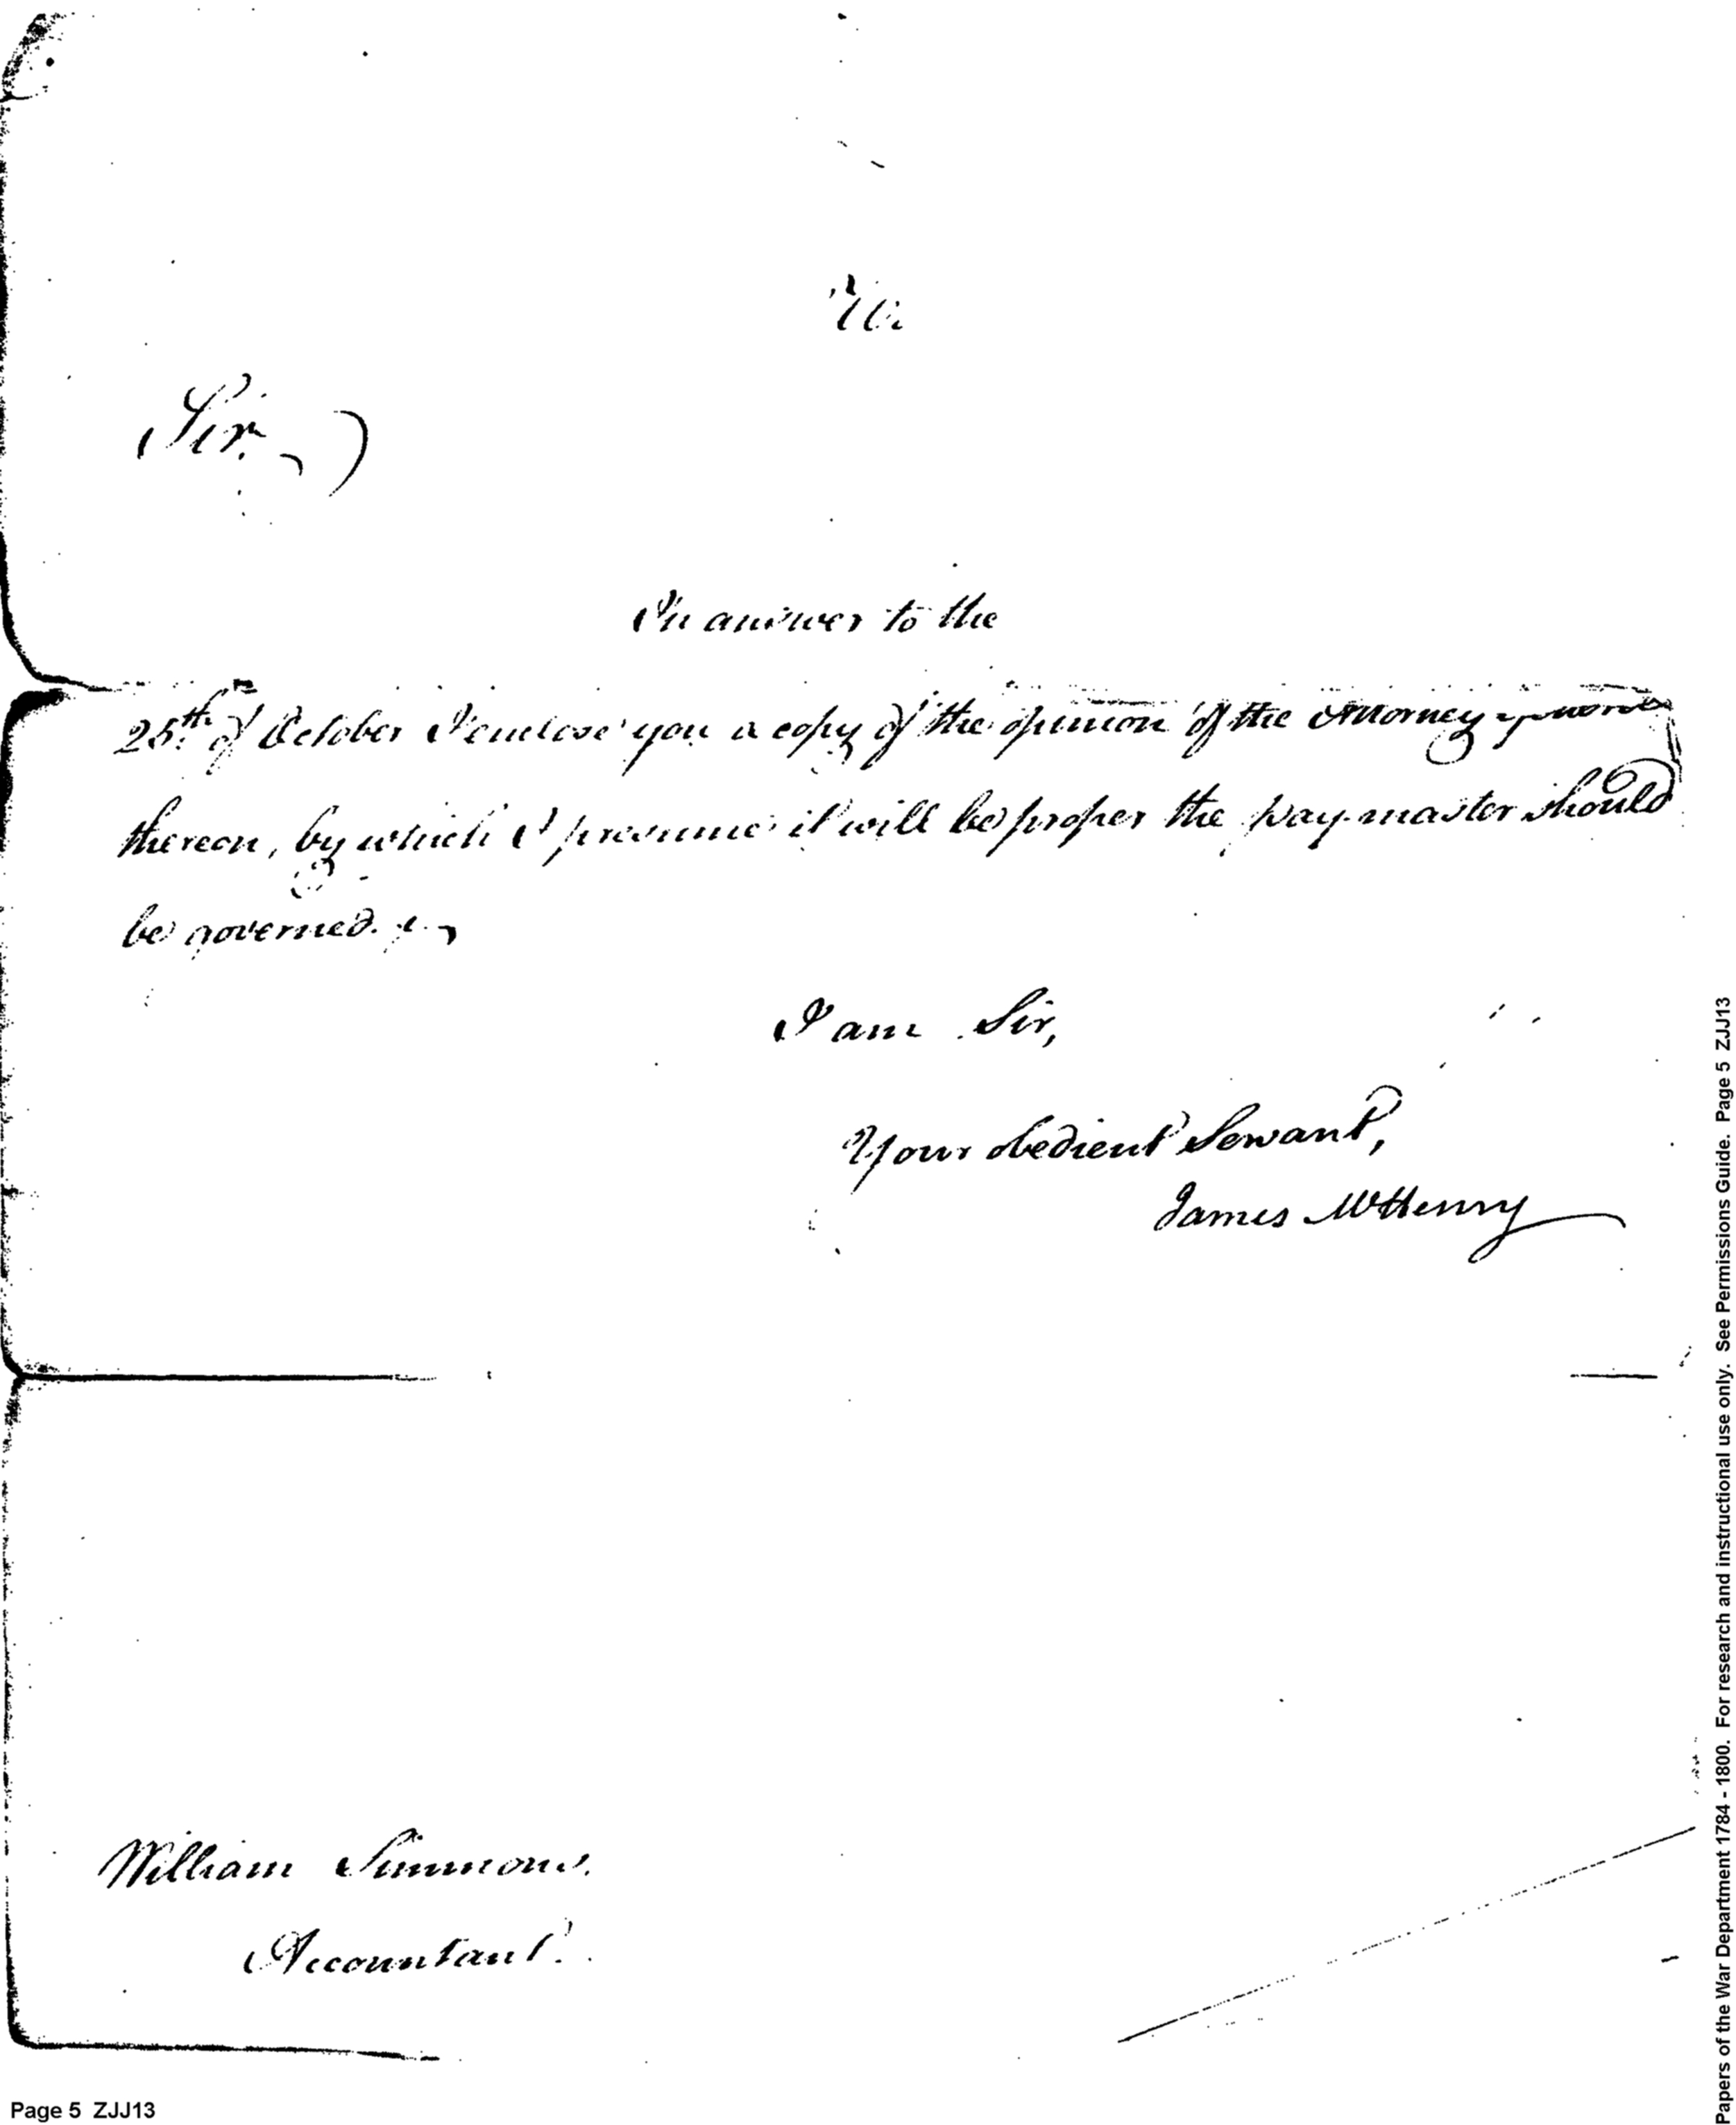 Sir,
In answer to the
25th. of October I enclose you a copy of the opinion of the Attorney general
thereon, by which I presume it will be proper the pay-master should
be governed.
I am Sir,
Your obedient Servant,
James McHenry
William Simmons.
Accountant.
Page 5 ZJJ13
Papers of the War Department 1784 - 1800. For research and instructional use only. See Permissions Guide. Page 5 ZJJ13